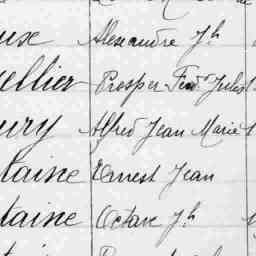 Alexandre Jh
ellier Prosper Fcd Jules
Alfred Jean Marie
taine Ernest Jean
taine Octave Jh